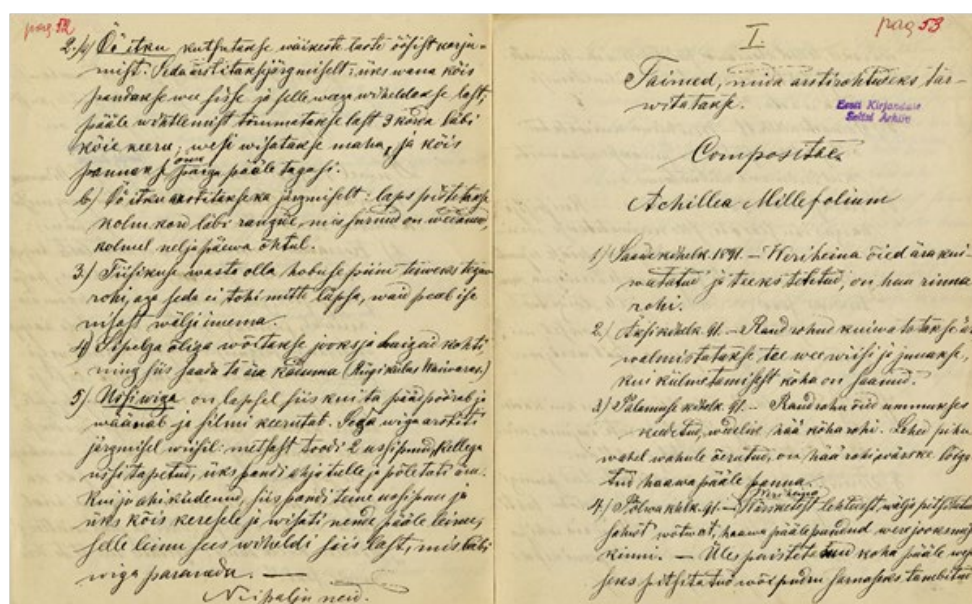 pag 52
2. a) Öö itku kutsutakse wäikeste laste öösist karju-
mist. Seda arstitakse järgmiselt: üks wana kõis
pandakse wee sisse ja selle weega wiheldakse last,
pääle wihtlemist tõmmatakse last 3 korra läbi
kõie keeru; wesi wisatakse maha, ja kõis
pannakse oma paiga pääle tagasi.
b) Öö itku arstitakse ka järgmiselt: laps pistetakse
kolm kord läbi rangide, mis hobused on wedanud,
kolmel neljapäewa õhtul.
3.) Tiisikuse wasta olla hobuse piim tõsiseks
rohi, aga seda ei tohi mitte lüpsa, waid peab ise
nisast wälja imema.
4) Sipelga õliga wõitakse jooksja haigeid kohti,
ning siis saada ta ära kaduma (Riigi külas Waiwaras.)
5) Ussi wiga on lapsel siis kui ta pääd pöörab ja
wäänab ja silmi keerutab. Seda wiga arstiti
järgmisel wiisil: metsast toodi 2 ussi puud, kellega
ussi tapetud, üks pandi ahju tulle ja põletati ära.
Kui ju ahi küdenud, siis pandi teine ussi puu ja
üks kõis kerisele ja wisati nende pääle leimu,
selle leimu sees wiheldi siis last, mis läbi
wiga paranada. —
Niipalju neid.
pag 53
I
Taimed, mida arstirohtudeks tar-
witatakse.
Eesti Kirjanduse
Seltsi Arhiiv
Compositae
Achillea Millefolium
1) Saarde kihelk. 1891. — Weriheina õied ära kui-
watatud ja teeks keedetud, on hää rinna
rohi.
2) Äksi kihelk. 91. — Raudrohud kuiwatatakse ära
walmistatakse tee wee wiisi ja juuakse,
kui külmetamisest köha on saanud.
3) Palamuse kihelk. 91. — Raudrohu õied ummukses
keedetud, wedelus hää köha rohi. Lehed pihu
wahel wahule õerutud, on hää rohi wärske lõiga-
tud haawa pääle panna.
4) Põlwa kihelk. 91. — Wärsketest Weriheina lehtedest wälja pitsitatud
sahwt wõtwat, haawa pääle pandud were jooksmast
kinni. — Üles paistetanud koha pääle
seks pitsitatud wõi pudru sarnaseks tambitud